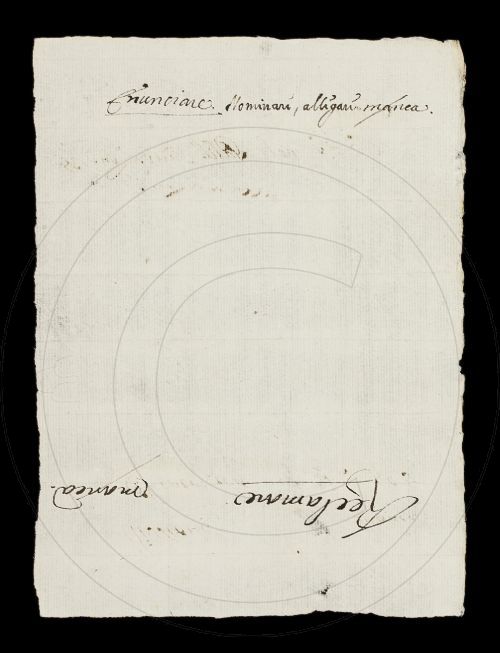 Enunciare. Nominari, alligari manca.
Reclamare manca.